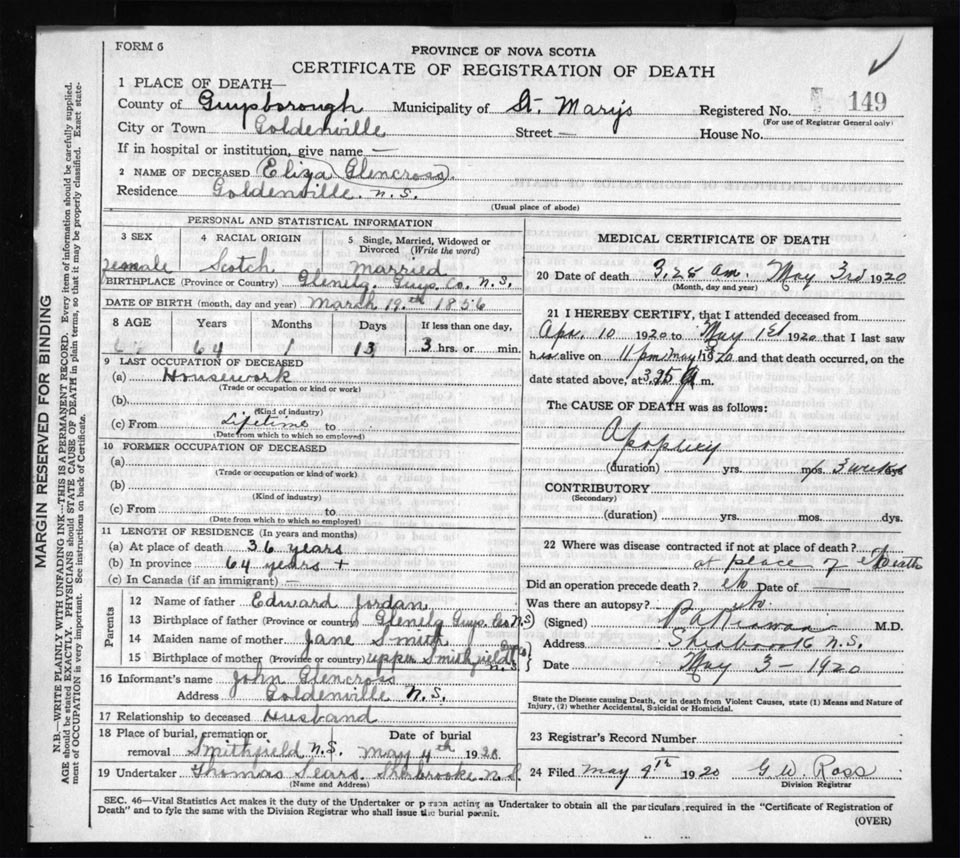 FORM 6
PROVINCE OF NOVA SCOTIA
CERTIFICATE OF REGISTRATION OF DEATH
1 PLACE OF DEATH—
County of Guysborough Municipality of St. Marys Registered No. 149
(For use of Registrar General only)
City or Town Goldenville Street — House No.
If in hospital or institution, give name —
2 NAME OF DECEASED (Eliza Glencross)
Residence Goldenville. N.S.
(Usual place of abode)
PERSONAL AND STATISTICAL INFORMATION
3 SEX 4 RACIAL ORIGIN 5 Single, Married, Widowed or Divorced (Write the word)
Female Scotch Married
BIRTHPLACE (Province or Country) Glenelg. Guys. Co. N.S.
DATE OF BIRTH (month, day and year) March 19th 1856
8 AGE Years Months Days If less than one day,
64 1 13 3 hrs. or min.
9 LAST OCCUPATION OF DECEASED
(a) Housework
(Trade or occupation or kind or work)
(b)
(Kind of industry)
(c) From Lifetime to
(Date from which to which so employed)
10 FORMER OCCUPATION OF DECEASED
(a)
(Trade or occupation or kind of work)
(b)
(Kind of industry)
(c) From to
(Date from which to which so employed)
11 LENGTH OF RESIDENCE (In years and months)
(a) At place of death 36 years
(b) In province 64 years +
(c) In Canada (if an immigrant) —
Parents
12 Name of father Edward Jordan
13 Birthplace of father (Province or country) Glenelg Guys. Co N.S.
14 Maiden name of mother Jane Smith
15 Birthplace of mother (Province or country) Upper Smithfield N.S.
16 Informant's name John Glencross
Address Goldenville N.S.
17 Relationship to deceased Husband
18 Place of burial, cremation or removal Smithfield N.S. Date of burial May 4th 1920
19 Undertaker Thomas Sears. Sherbrooke N.S.
(Name and Address)
MEDICAL CERTIFICATE OF DEATH
20 Date of death 3.25 am. May 3rd 1920
(Month, day and year)
21 I HEREBY CERTIFY, that I attended deceased from
Apr. 10 1920 to May 1st 1920 that I last saw
h alive on 11 pm May 1920 and that death occurred, on the
date stated above, at 3.25 a m.
The CAUSE OF DEATH was as follows:
Apoplexy
(duration) yrs. mos. 3 weeks dys
CONTRIBUTORY
(Secondary)
(duration) yrs. mos. dys.
22 Where was disease contracted if not at place of death?
at place of Death
Did an operation precede death? No Date of —
Was there an autopsy? No
(Signed) M.D.
Address Sherbrooke N.S.
Date May 3 - 1920
State the Disease causing Death, or in death from Violent Causes, state (1) Means and Nature of
Injury, (2) whether Accidental, Suicidal or Homicidal.
23 Registrar's Record Number
24 Filed May 9th 1920 G W Ross
Division Registrar
SEC. 46—Vital Statistics Act makes it the duty of the Undertaker or person acting as Undertaker to obtain all the particulars required in the "Certificate of Registration of
Death" and to fyle the same with the Division Registrar who shall issue the burial permit.
(OVER)
MARGIN RESERVED FOR BINDING
N.B.—WRITE PLAINLY WITH UNFADING INK—THIS IS A PERMANENT RECORD. Every item of information should be carefully supplied.
AGE should be stated EXACTLY. PHYSICIANS should STATE CAUSE OF DEATH in plain terms, so that it may be properly classified. Exact state-
ment of OCCUPATION is very important. See instructions on back of Certificate.